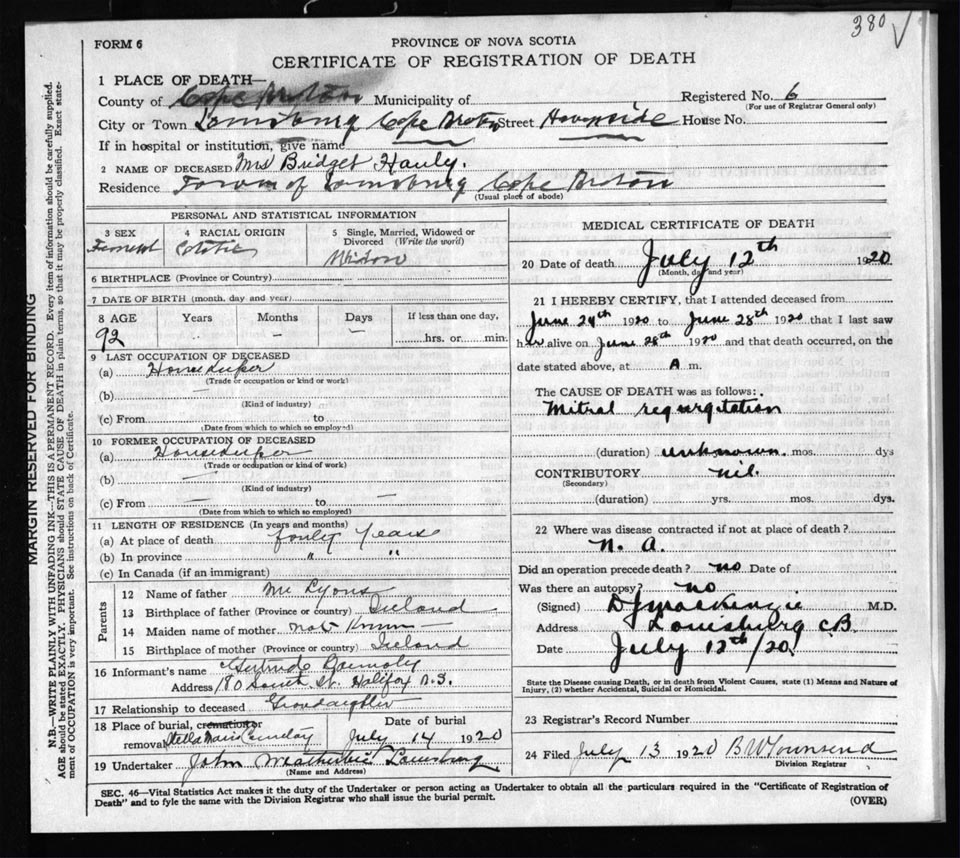 380 ✓
FORM 6
PROVINCE OF NOVA SCOTIA
CERTIFICATE OF REGISTRATION OF DEATH
1 PLACE OF DEATH—
County of Cape Breton Municipality of Registered No. 6
(For use of Registrar General only)
City or Town Louisburg Cape Breton Street Havenside House No.
If in hospital or institution, give name
2 NAME OF DECEASED Mrs Bridget Hauly.
Residence Town of Louisburg Cape Breton
(Usual place of abode)
PERSONAL AND STATISTICAL INFORMATION
3 SEX 4 RACIAL ORIGIN 5 Single, Married, Widowed or Divorced (Write the word)
Widow
6 BIRTHPLACE (Province or Country)
7 DATE OF BIRTH (month, day and year)
8 AGE Years Months Days If less than one day,
92 — — hrs. or min.
9 LAST OCCUPATION OF DECEASED
(a) Housekeeper
(Trade or occupation or kind or work)
(b) —
(Kind of industry)
(c) From to
(Date from which to which so employed)
10 FORMER OCCUPATION OF DECEASED
(a) Housekeeper
(Trade or occupation or kind of work)
(b) —
(Kind of industry)
(c) From — to —
(Date from which to which so employed)
11 LENGTH OF RESIDENCE (In years and months)
(a) At place of death years
(b) In province " "
(c) In Canada (if an immigrant)
Parents
12 Name of father Mr Lyons
13 Birthplace of father (Province or country) Ireland
14 Maiden name of mother not known
15 Birthplace of mother (Province or country) Ireland
16 Informant's name Gertrude
Address 180 South St. Halifax N.S.
17 Relationship to deceased Grandaughter
18 Place of burial, cremation or removal Stella Maris Date of burial July 14 1920
19 Undertaker John Louisburg
(Name and Address)
MEDICAL CERTIFICATE OF DEATH
20 Date of death July 12th 1920
(Month, day and year)
21 I HEREBY CERTIFY, that I attended deceased from
June 24th 1920 to June 28th 1920 that I last saw
her alive on June 28th 1920 and that death occurred, on the
date stated above, at A m.
The CAUSE OF DEATH was as follows:
Mitral regurgitation
(duration) unknown. mos. dys
CONTRIBUTORY nil.
(Secondary)
(duration) yrs. mos. dys.
22 Where was disease contracted if not at place of death?
N. A.
Did an operation precede death? no Date of
Was there an autopsy? no
(Signed) D J MacKenzie M.D.
Address Louisburg C.B.
Date July 12th/20
State the Disease causing Death, or in death from Violent Causes, state (1) Means and Nature of
Injury, (2) whether Accidental, Suicidal or Homicidal.
23 Registrar's Record Number
24 Filed July 13 1920 B W Townsend
Division Registrar
SEC. 46—Vital Statistics Act makes it the duty of the Undertaker or person acting as Undertaker to obtain all the particulars required in the "Certificate of Registration of
Death" and to fyle the same with the Division Registrar who shall issue the burial permit.
(OVER)
MARGIN RESERVED FOR BINDING
N.B.—WRITE PLAINLY WITH UNFADING INK—THIS IS A PERMANENT RECORD. Every item of information should be carefully supplied.
AGE should be stated EXACTLY. PHYSICIANS should STATE CAUSE OF DEATH in plain terms, so that it may be properly classified. Exact state-
ment of OCCUPATION is very important. See instructions on back of Certificate.